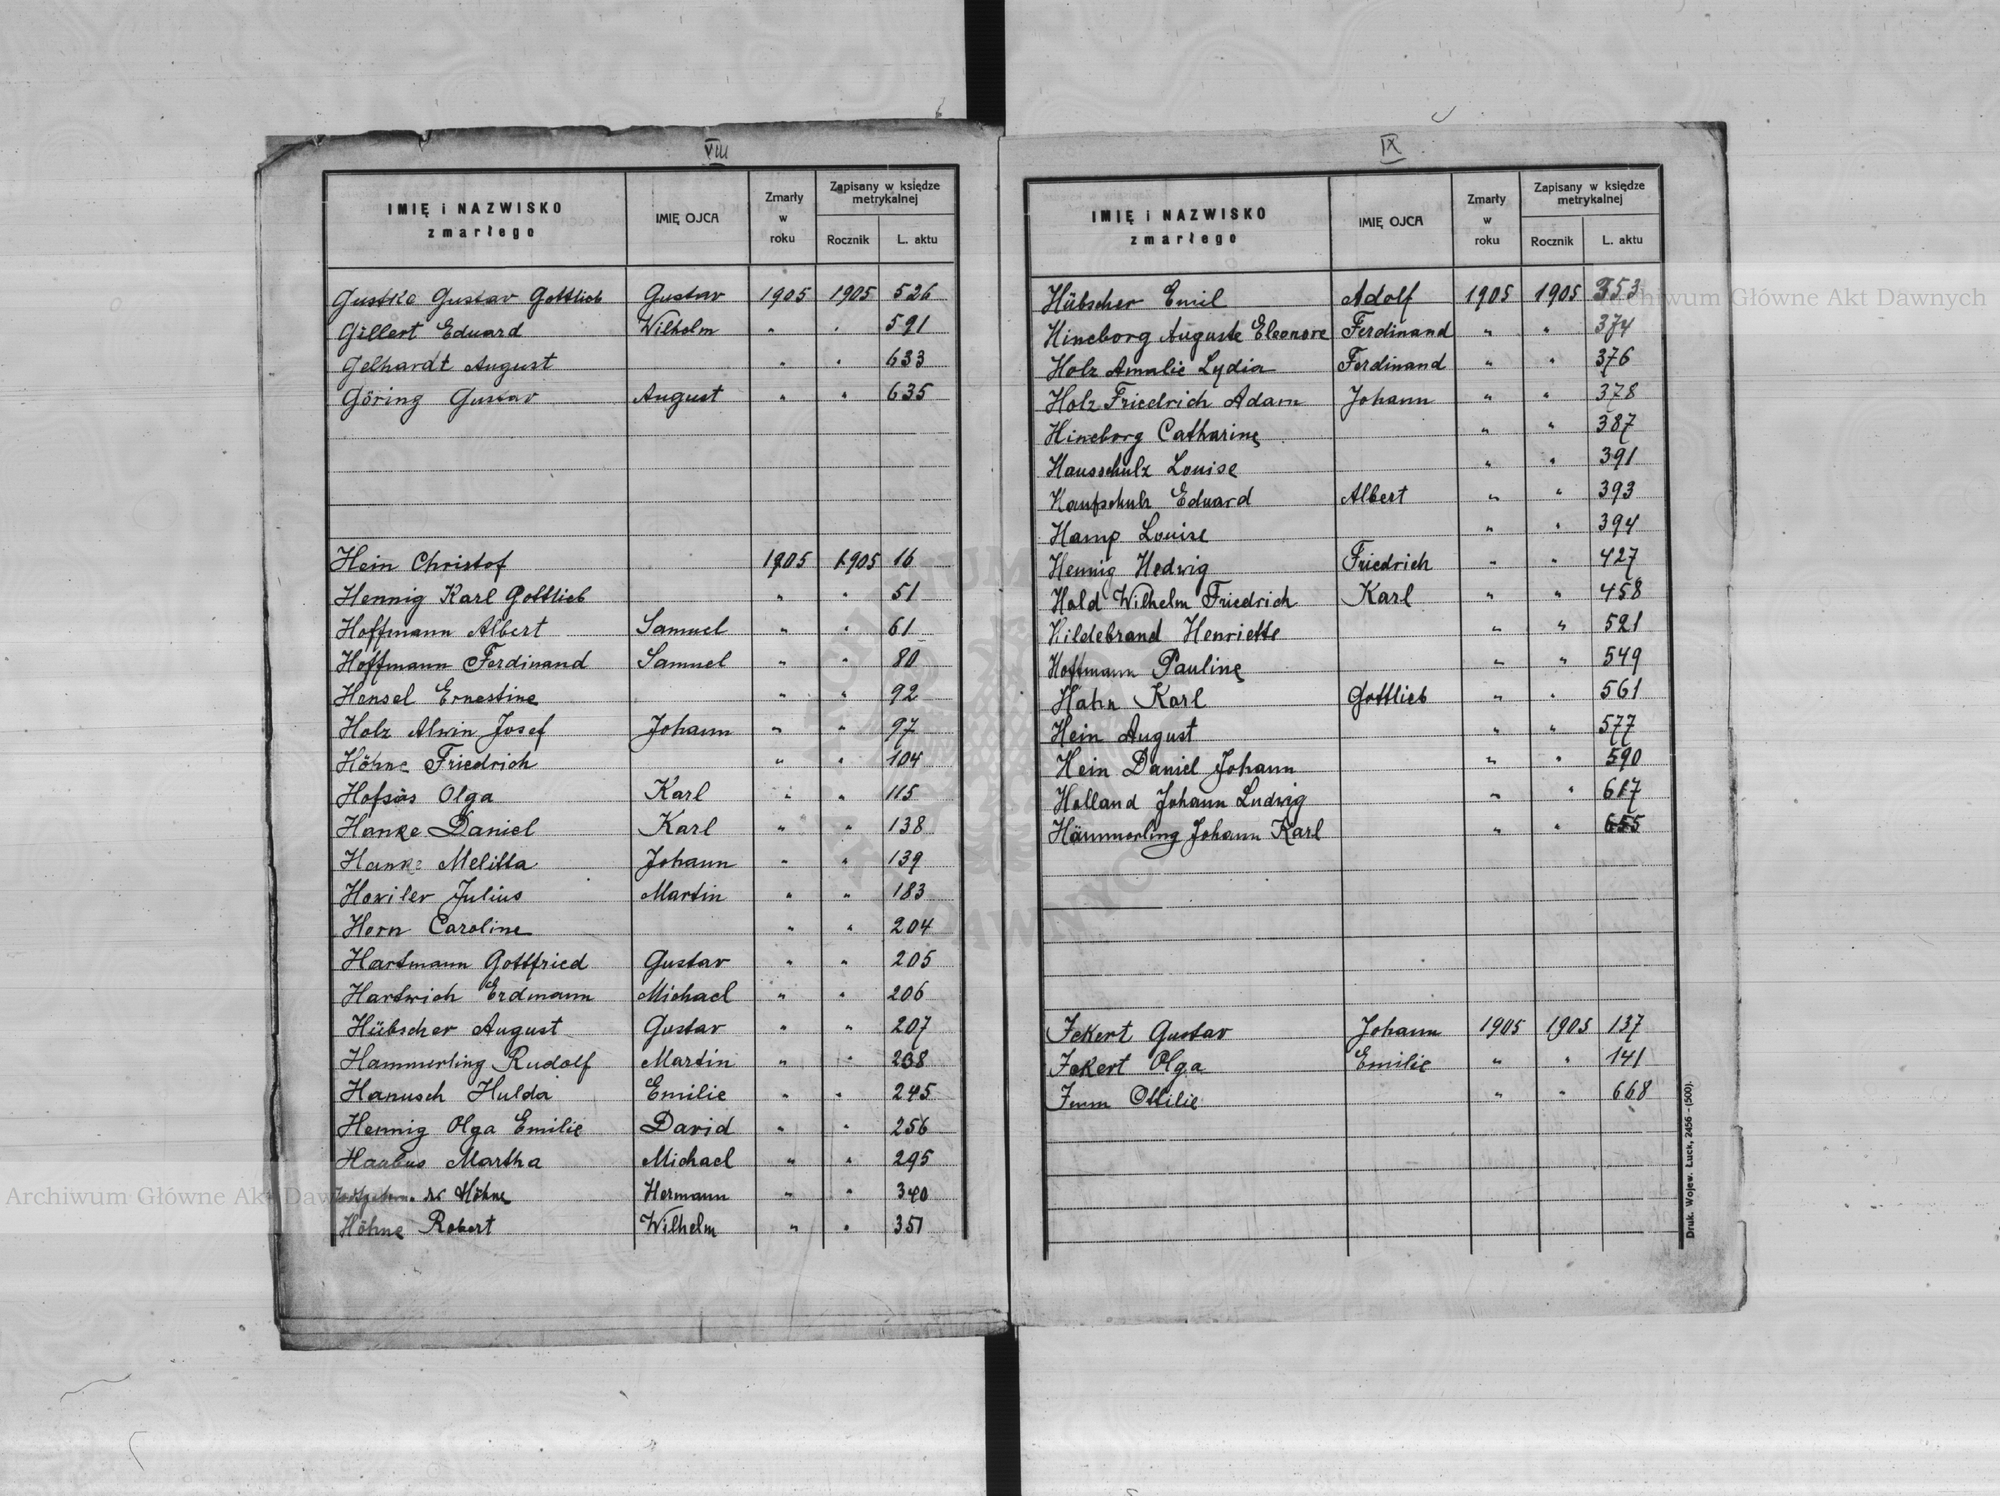 VIII
IMIĘ i NAZWISKO zmarłego IMIĘ OJCA Zmarły w roku Zapisany w księdze metrykalnej Rocznik L. aktu
Gustke Gustav Gottlieb Gustav 1905 1905 526
Gillert Eduard Wilhelm " " 591
Gelhardt August " " 633
Göring Gustav August " " 635
Hein Christof 1905 1905 16
Hennig Karl Gottlieb " " 51
Hoffmann Albert Samuel " " 61
Hoffmann Ferdinand Samuel " " 80
Hensel Ernestine " " 92
Holz Alwin Josef Johann " " 97
Höhne Friedrich " " 104
Hofsäs Olga Karl " " 115
Hanke Daniel Karl " " 138
Hanke Melitta Johann " " 139
Julius Martin " " 183
Horn Caroline " " 204
Hartmann Gottfried Gustav " " 205
Hartwich Erdmann Michael " " 206
Hübscher August Gustav " " 207
Hammerling Rudolf Martin " " 238
Hanusch Hulda Emilie " " 245
Hennig Olga Emilie David " " 256
Martha Michael " " 295
des Höhne Hermann " " 340
Höhne Robert Wilhelm " " 351
IX
IMIĘ i NAZWISKO zmarłego IMIĘ OJCA Zmarły w roku Zapisany w księdze metrykalnej Rocznik L. aktu
Hübscher Emil Adolf 1905 1905 353
Hineborg Auguste Eleonore Ferdinand " " 374
Holz Amalie Lydia Ferdinand " " 376
Holz Friedrich Adam Johann " " 378
Hineborg Catharine " " 387
Hausschulz Louise " " 391
Eduard Albert " " 393
Hamp Louise " " 394
Hennig Hedwig Friedrich " " 427
Hold Wilhelm Friedrich Karl " " 458
Hildebrand Henriette " " 521
Hoffmann Pauline " " 549
Hahn Karl Gottlieb " " 561
Hein August " " 577
Hein Daniel Johann " " 590
Holland Johann Ludwig " " 617
Hämmerling Johann Karl " " 655
Ickert Gustav Johann 1905 1905 137
Ickert Olga Emilie " " 141
Imm Ottilie " " 668
Druk. Wojew. Łuck, 2456 – (500).
Archiwum Główne Akt Dawnych
Archiwum Główne Akt Dawnych